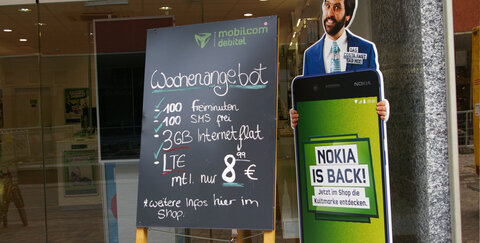 mobilcom
debitel
Wochenangebot
100 freiminuten
100 SMS frei
3GB Internetflat
LTE
mtl. nur 8,99 €
*weitere Infos hier im
Shop.
NOKIA
NOKIA
IS BACK!
Jetzt im Shop die
Kultmarke entdecken.